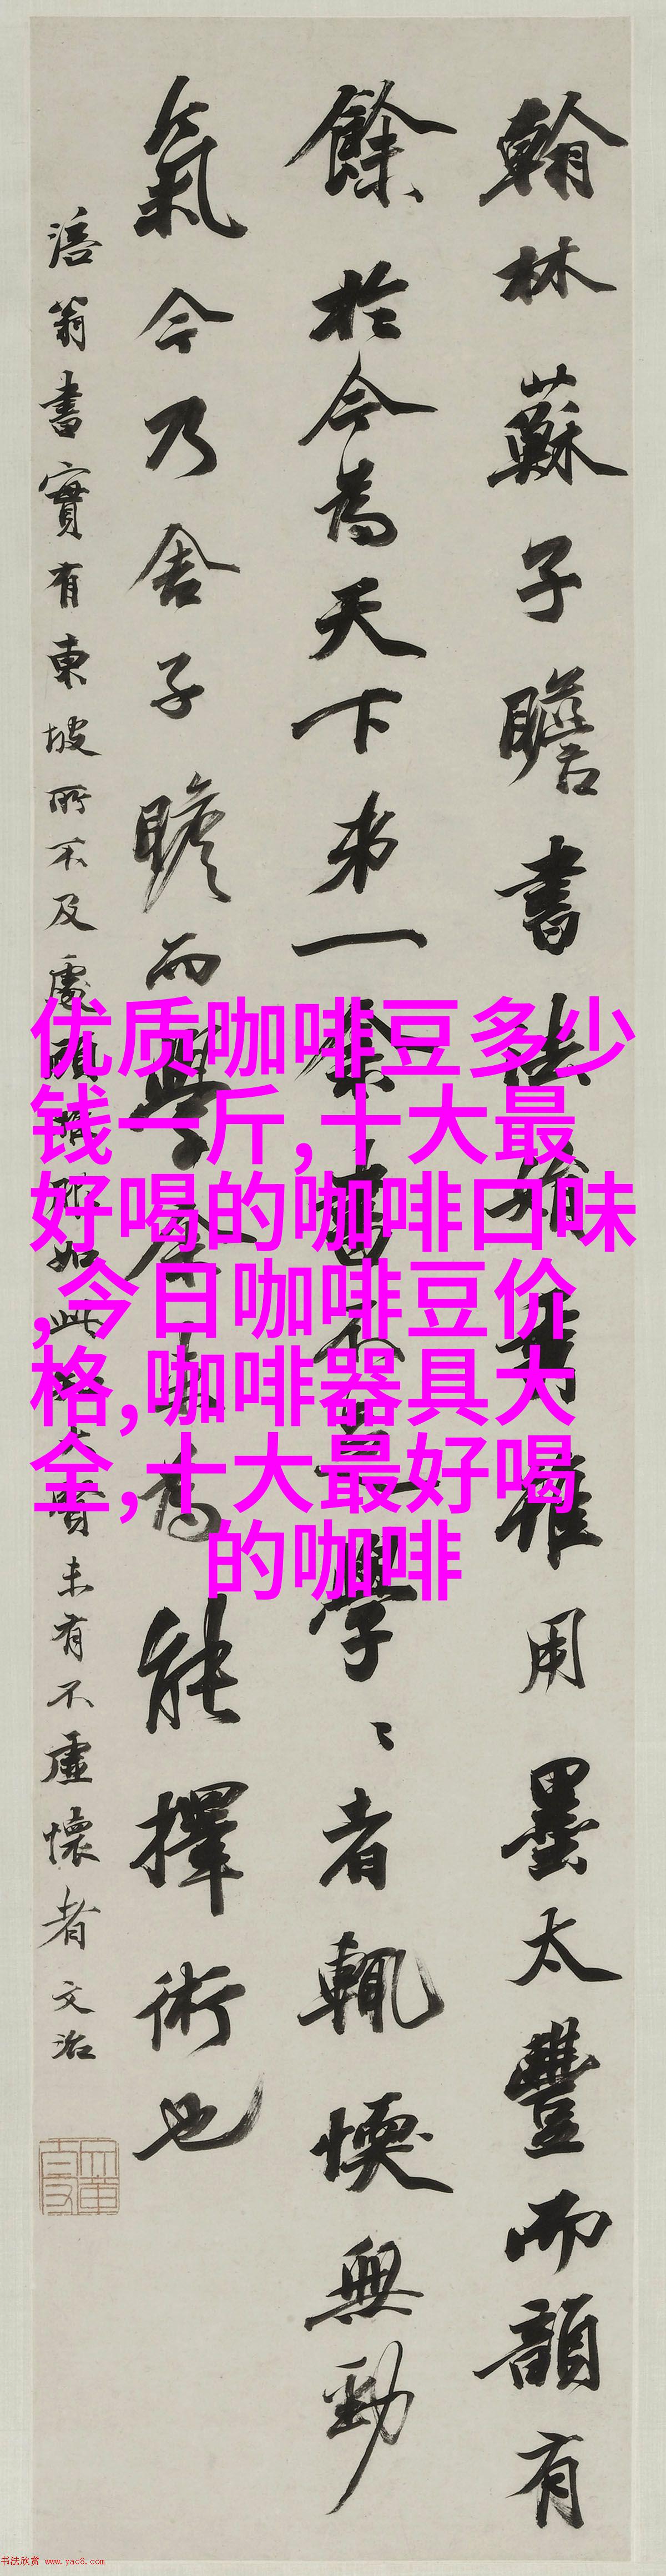 翰林蘇子瞻書法娟秀雖用墨太豐而韻有
餘於今為天下第一余書不足學〻者輒愞無勁
氣今乃舍子瞻而學余未為能擇術也
涪翁書實有東坡所不及處如此賢未有不虛懷者文治
优质咖啡豆多少
钱一斤,十大最
好喝的咖啡口味
,今日咖啡豆价
格,咖啡器具大
全,十大最好喝
的咖啡
书法欣赏 www.yac8.com